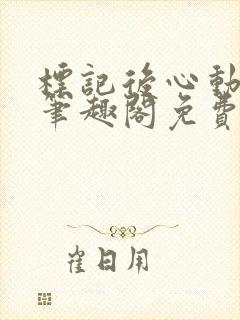 標記後心動
筆趣閣免費
崔日用